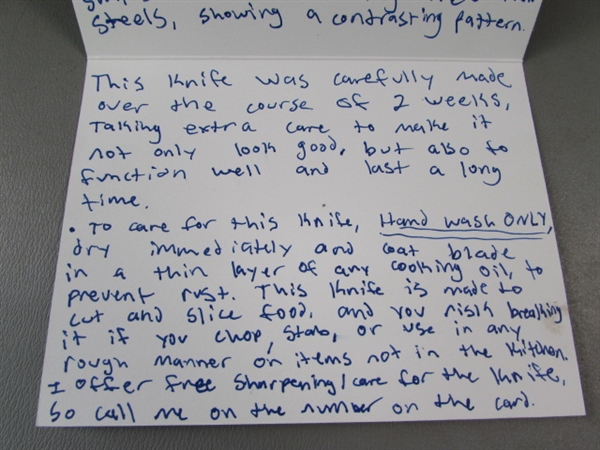 steels, showing a contrasting pattern.
This knife was carefully made
over the course of 2 weeks,
Taking extra care to make it
not only look good, but also to
function well and last a long
time.
• To care for this knife, Hand wash ONLY,
dry immediately and coat blade
in a thin layer of any cooking oil, to
prevent rust. This knife is made to
cut and slice food, and you risk breaking
it if you chop, stab, or use in any
rough manner on items not in the kitchen.
I offer free sharpening/care for the knife,
so call me on the number on the card.